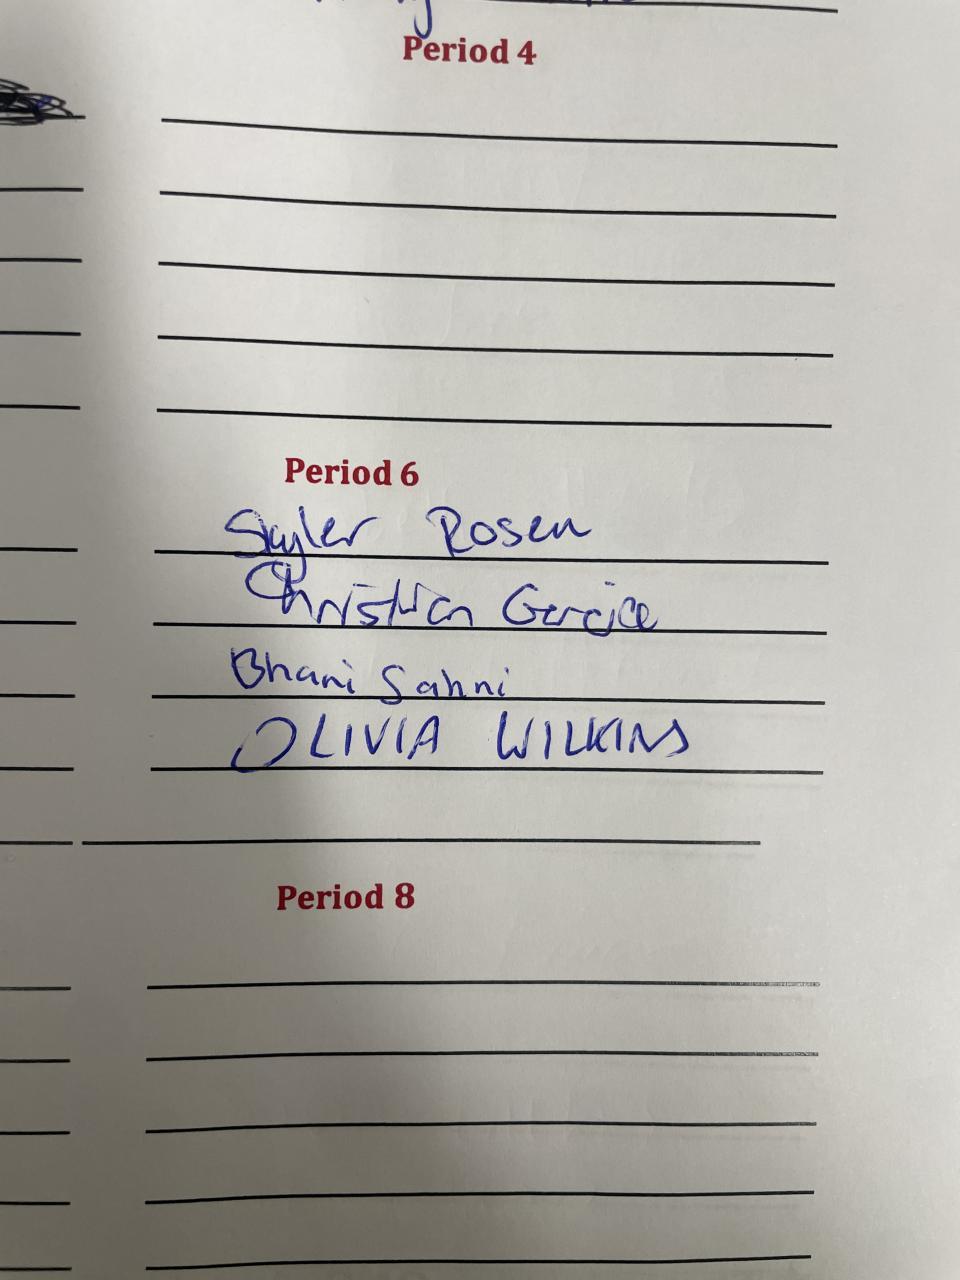 Period 4
Period 6
Skyler Rosen
Christian
Bhani Sahni
OLIVIA WILKINS
Period 8